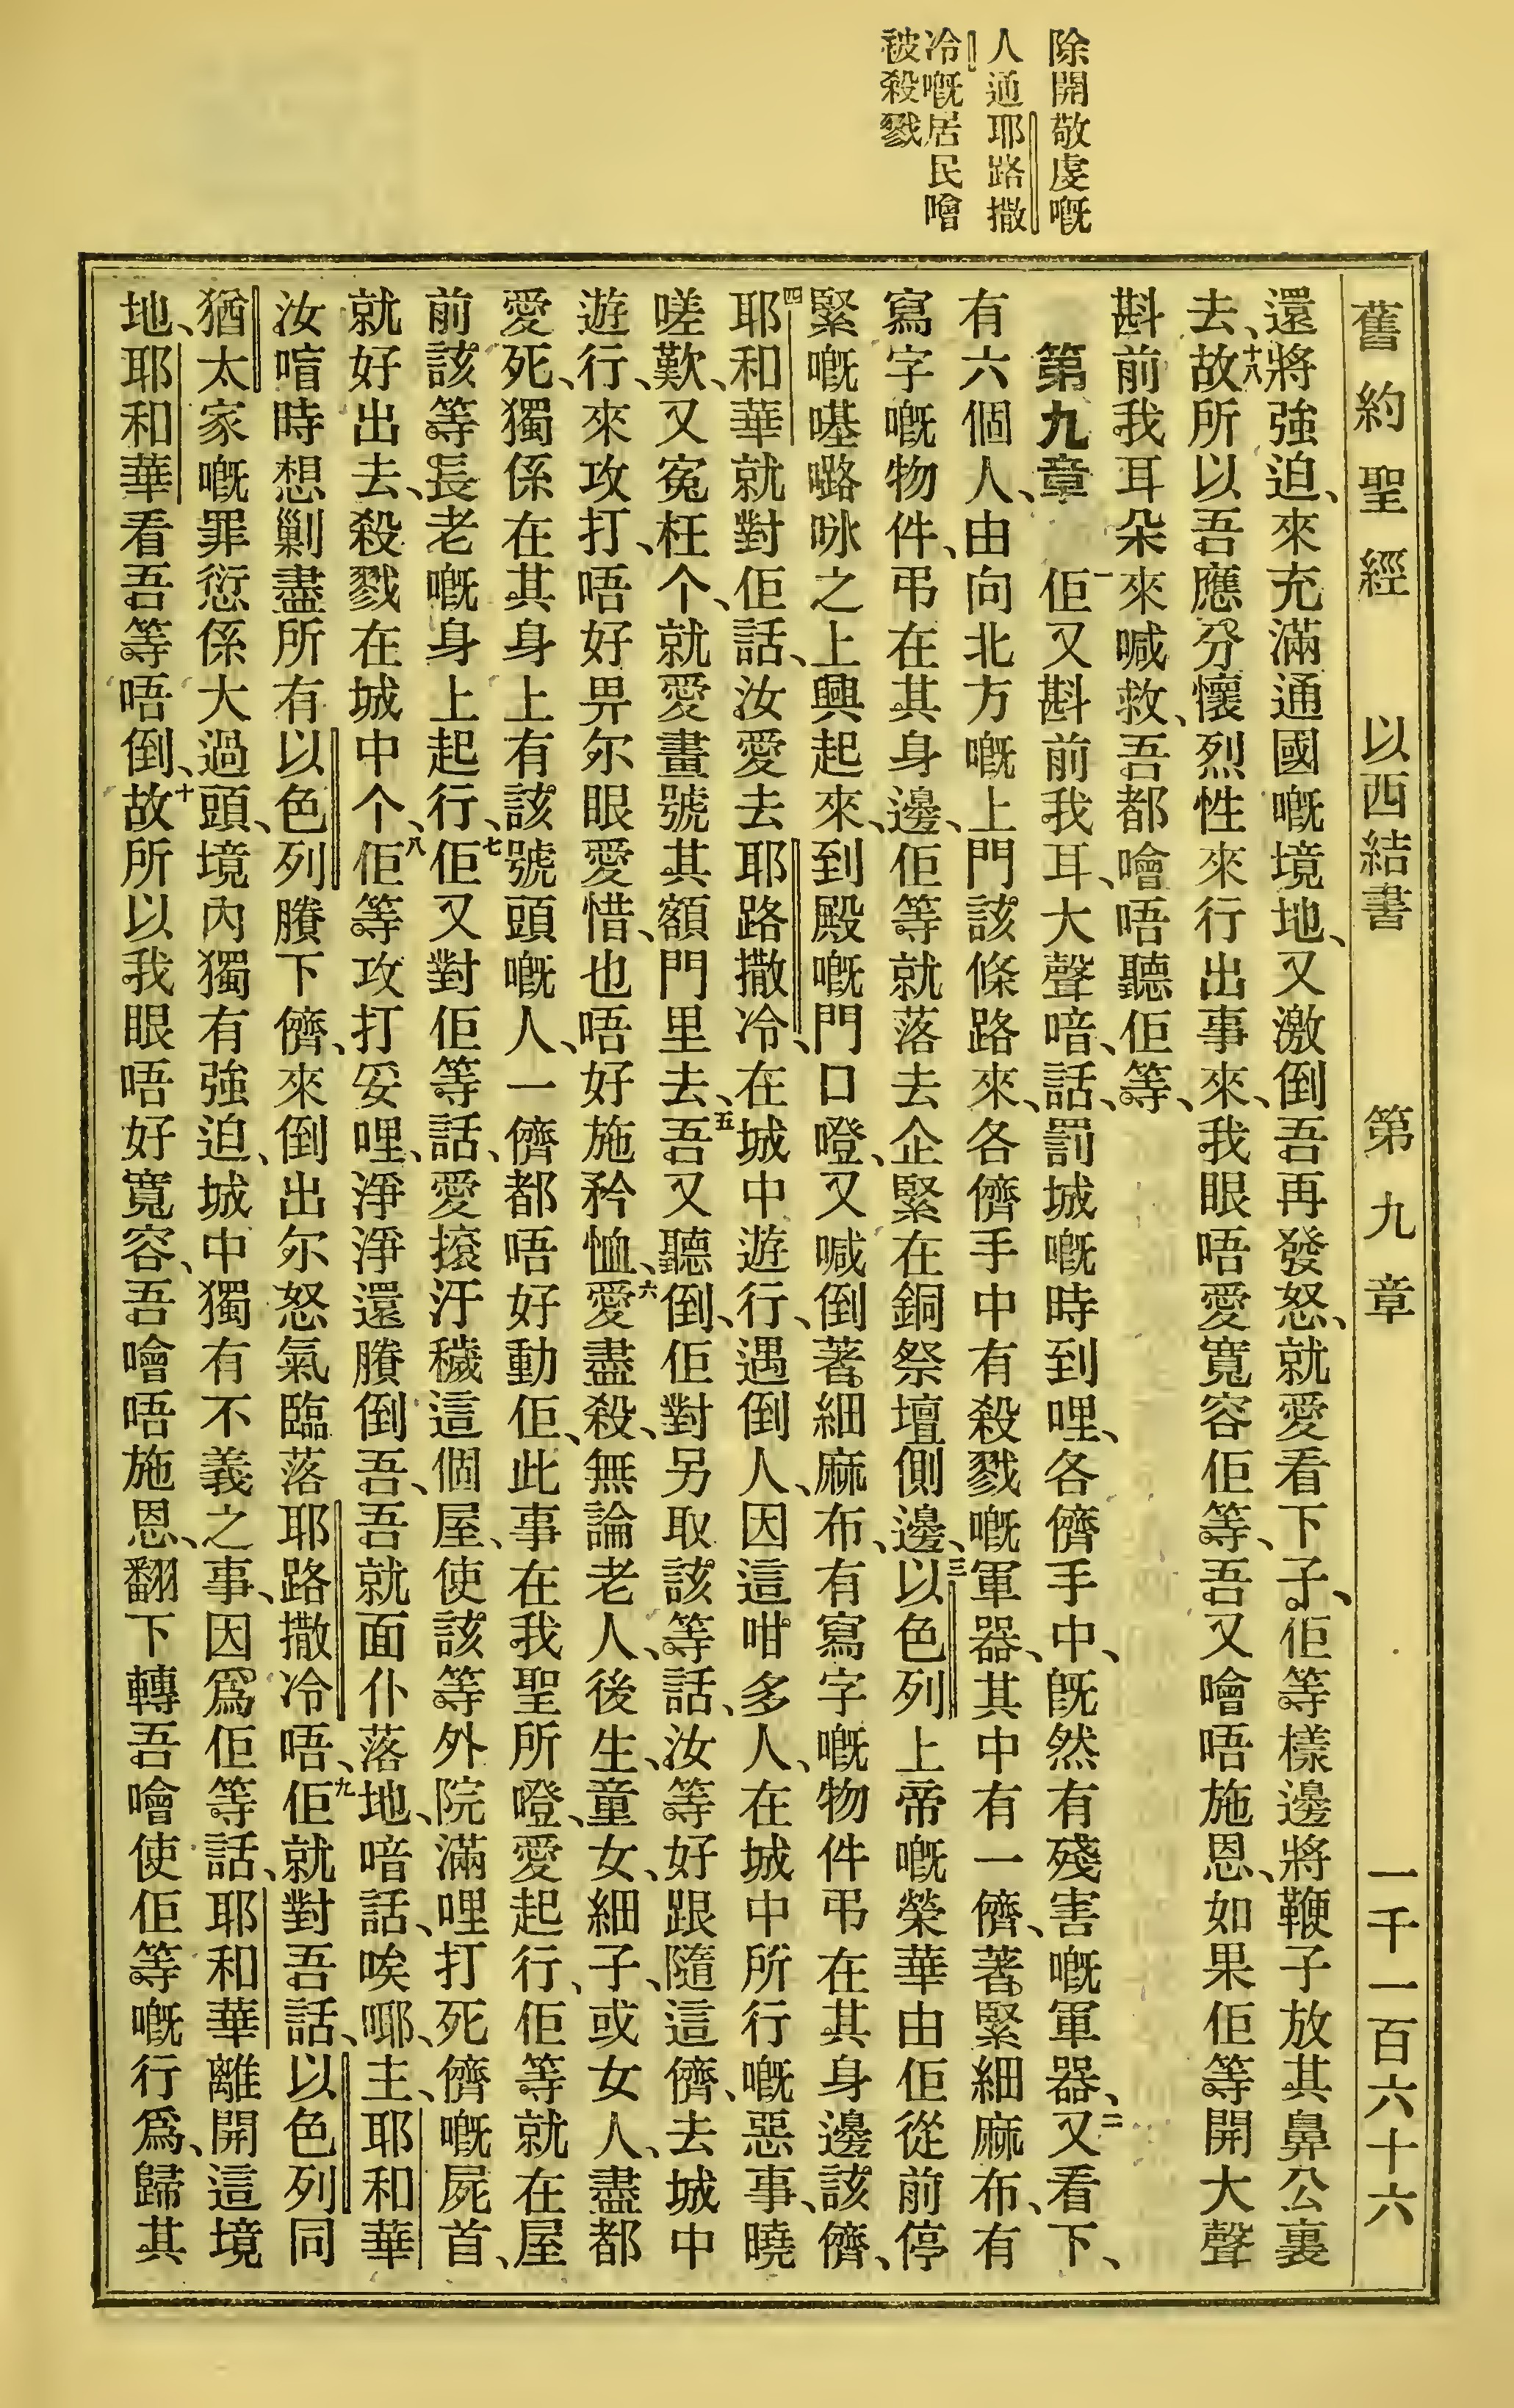 除開敬虔嘅
人通耶路撒
冷嘅居民噲
被殺戮
舊約聖經 以西結書 第九章 一千一百六十六
還將強迫、來充滿通國嘅境地、又激倒吾再發怒、就愛看下子、佢等樣邊將鞭子放其鼻公裏
去、十八故所以吾應分懷烈性來行出事來、我眼唔愛寬容佢等、吾又噲唔施恩、如果佢等開大聲
斟前我耳朵來喊救、吾都噲唔聽佢等、
第九章 一佢又斟前我耳、大聲喑話、罰城嘅時到哩、各儕手中、旣然有殘害嘅軍器、二又看下、
有六個人、由向北方嘅上門該條路來、各儕手中有殺戮嘅軍器、其中有一儕、著緊細麻布、有
寫字嘅物件、弔在其身邊、佢等就落去企緊在銅祭壇側邊、三以色列上帝嘅榮華由佢從前停
緊嘅𠹌嚕咏之上興起來、到殿嘅門口嶝、又喊倒著細麻布、有寫字嘅物件弔在其身邊該儕、
四耶和華就對佢話、汝愛去耶路撒冷、在城中遊行、遇倒人、因這咁多人、在城中所行嘅惡事、曉
嗟歎、又寃枉个、就愛畫號其額門里去、五吾又聽倒、佢對另取該等話、汝等好跟隨這儕、去城中
遊行、來攻打、唔好畀尔眼愛惜、也唔好施矜恤、六愛盡殺、無論老人、後生、童女、細子、或女人、盡都
愛死、獨係在其身上有該號頭嘅人、一儕都唔好動佢、此事在我聖所嶝、愛起行、佢等就在屋
前該等長老嘅身上起行、七佢又對佢等話、愛㨰汙穢這個屋、使該等外院滿哩打死儕嘅屍首、
就好出去、殺戮在城中个、八佢等攻打妥哩、淨淨還賸倒吾、吾就面仆落地、喑話、唉㖿、主、耶和華
汝喧時想剿盡所有以色列賸下儕、來倒出尔怒氣臨落耶路撒冷唔、九佢就對吾話、以色列同
猶太家嘅罪愆係大過頭、境內獨有強迫、城中獨有不義之事、因爲佢等話、耶和華離開這境
地、耶和華看吾等唔倒、十故所以我眼唔好寬容、吾噲唔施恩、翻下轉吾噲使佢等嘅行爲、歸其